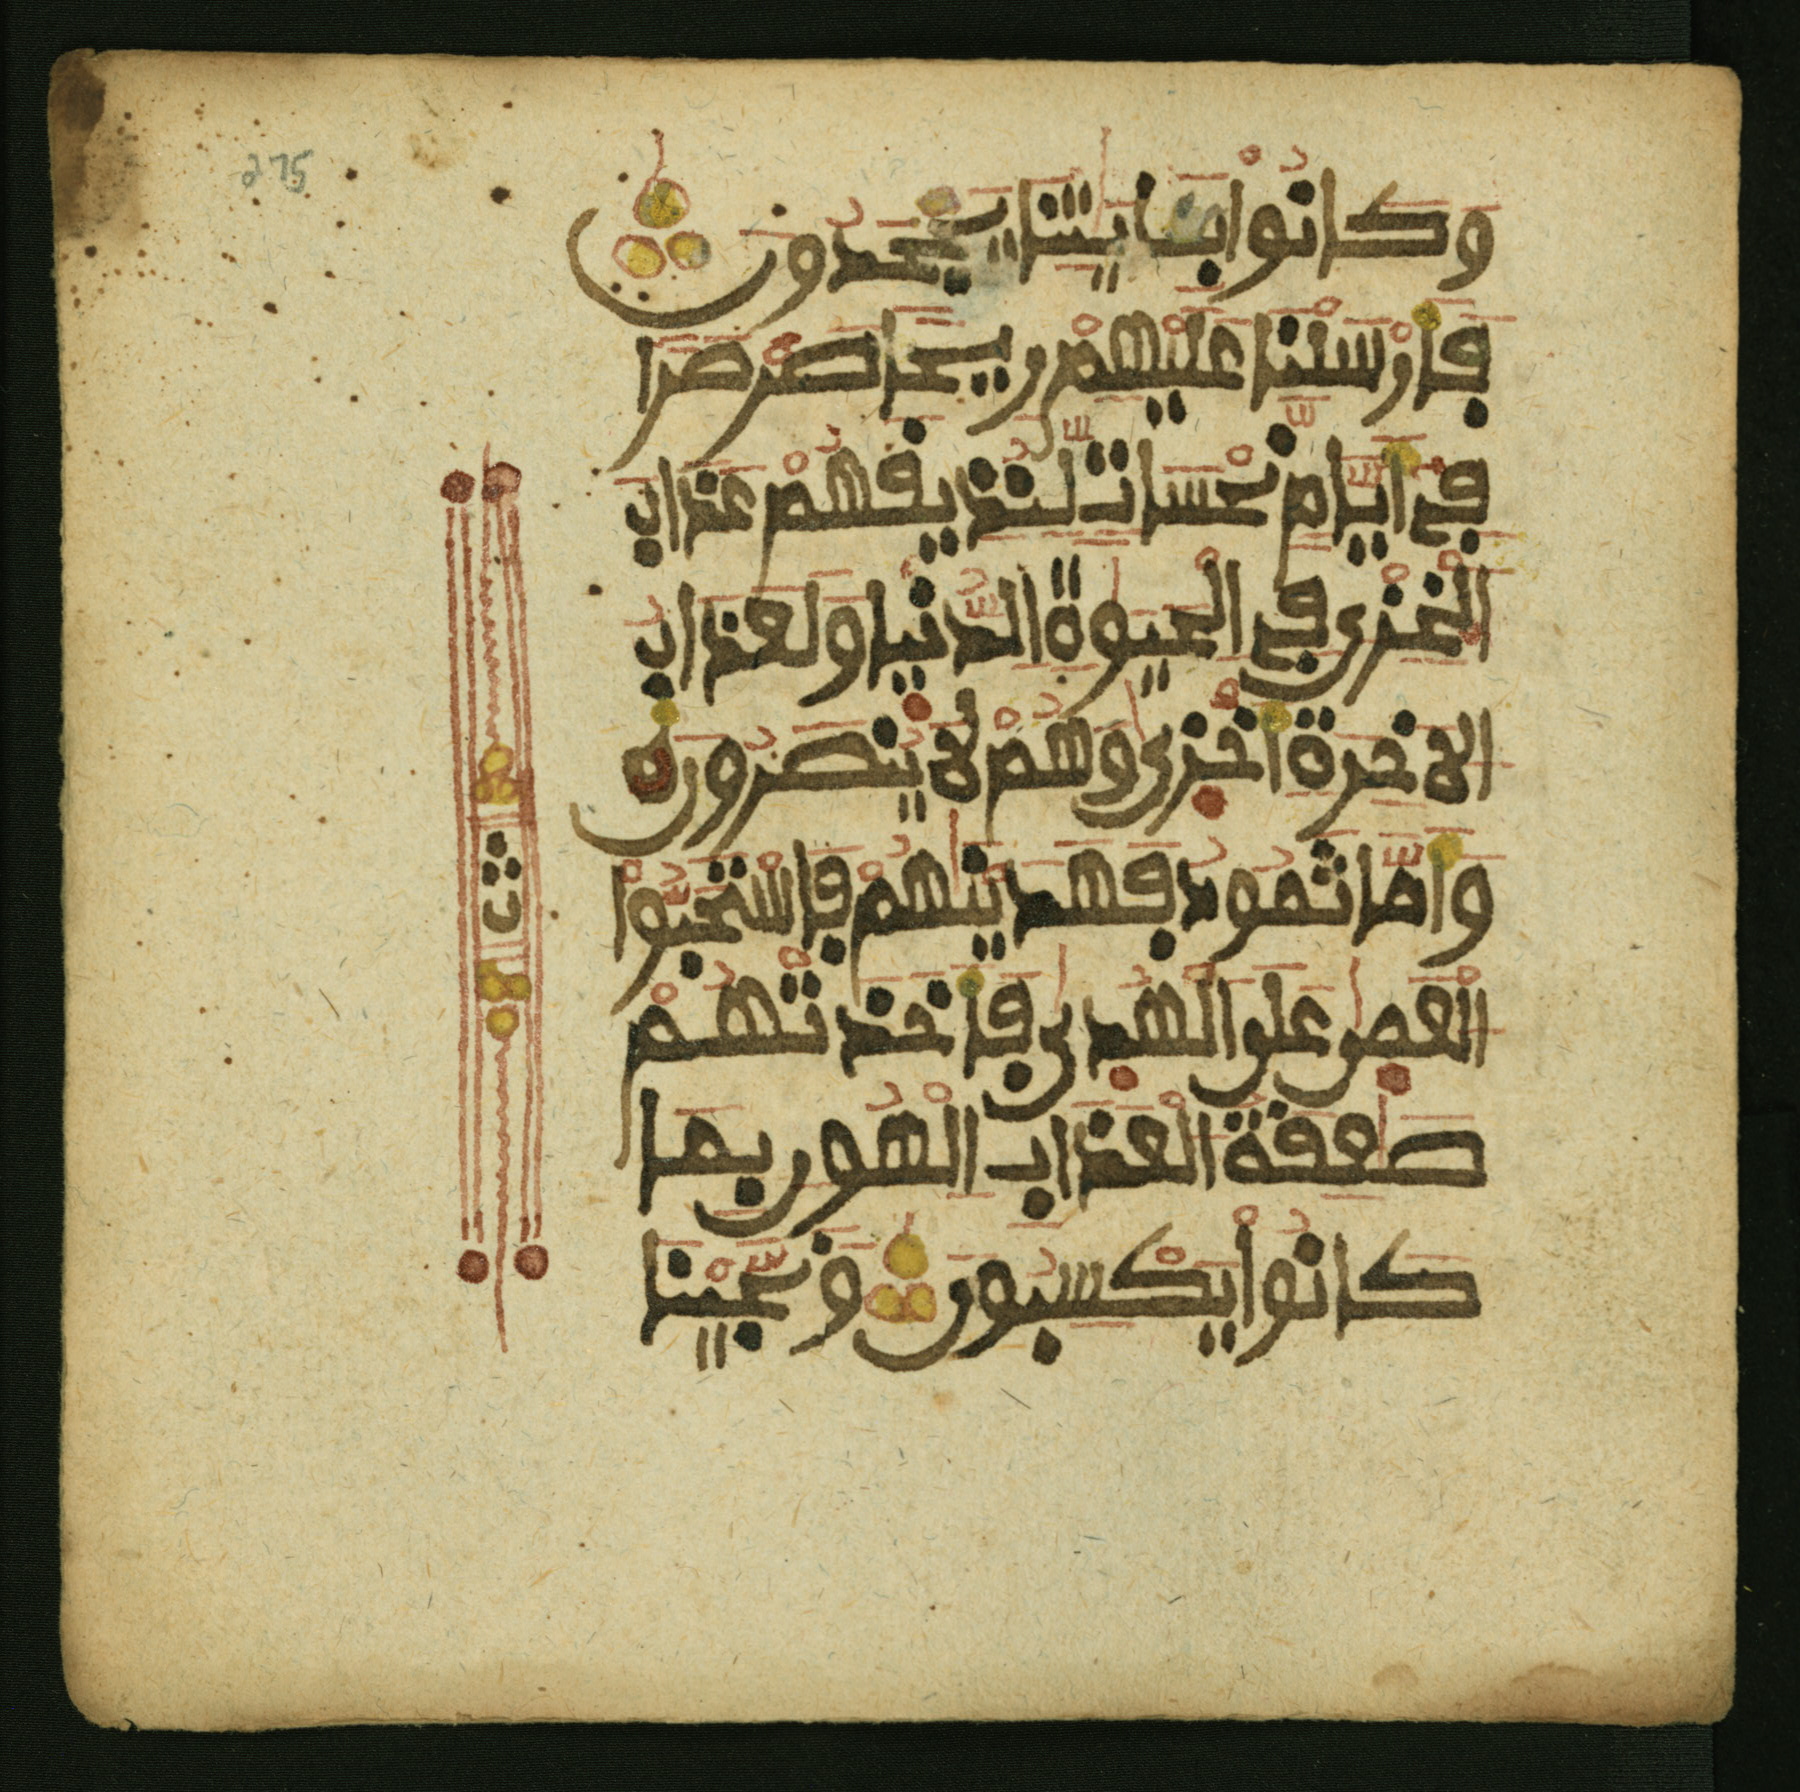 275
وَكَانُوا بِـَٔايَٰتِنَا يَجْحَدُونَ
فَأَرْسَلْنَا عَلَيْهِمْ رِيحًا صَرْصَرًا
فِي أَيَّامٍ نَحْسَاتٍ لِّنُذِيقَهُمْ عَذَابَ
الْخِزْيِ فِي الْحَيَوٰةِ الدُّنْيَا وَلَعَذَابُ
الْأَخِرَةِ أَخْزَىٰ وَهُمْ لَا يُنصَرُونَ
وَأَمَّا ثَمُودُ فَهَدَيْنَٰهُمْ فَاسْتَحَبُّوا
الْعَمَىٰ عَلَى الْهُدَىٰ فَأَخَذَتْهُمْ
صَٰعِقَةُ الْعَذَابِ الْهُونِ بِمَا
كَانُوا يَكْسِبُونَ وَنَجَّيْنَا
ث